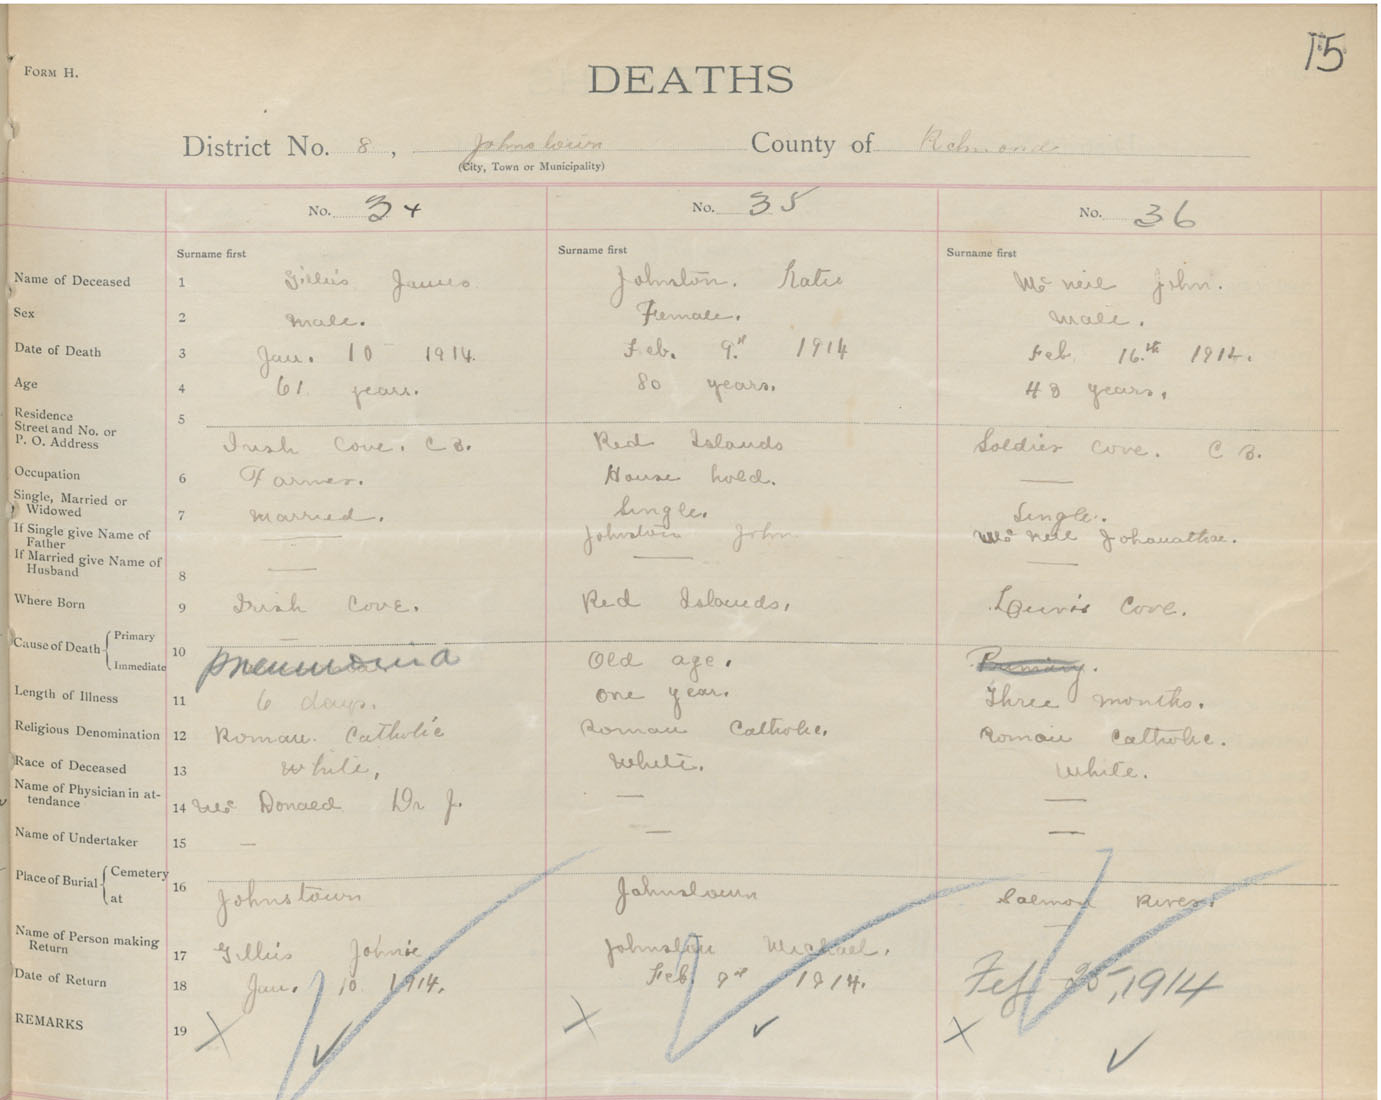 15
FORM H.
DEATHS
District No. 8, Johnstown County of Richmond
(City, Town or Municipality)
No. 34 No. 35 No. 36
Surname first Surname first Surname first
Name of Deceased 1 Gillis James Johnston. Katie Mc neil John.
Sex 2 male. Female. male.
Date of Death 3 Jan. 10 1914. Feb. 9th 1914 Feb 16th 1914.
Age 4 61 years. 80 years. 48 years.
Residence
Street and No. or 5
P. O. Address Irish Cove. C B. Red Islands Soldier Cove. C B.
Occupation 6 Farmer. House hold. —
Single, Married or
Widowed 7 married. Single. Single.
If Single give Name of
Father — Johnston John Mc neil
If Married give Name of
Husband 8 — — —
Where Born 9 Irish Cove. Red Islands. Cove.
Cause of Death { Primary —
Immediate 10 pneumonia Old age.
Length of Illness 11 6 days. one year. Three months.
Religious Denomination 12 Roman. Catholic Roman Catholic. Roman Catholic.
Race of Deceased 13 White, White. White.
Name of Physician in at-
tendance 14 Mc Donald Dr J. — —
Name of Undertaker 15 — — —
Place of Burial { Cemetery 16
at Johnstown Johnstown Salmon River.
Name of Person making
Return 17 Gillis Johnie Johnston Michael. —
Date of Return 18 Jan. 10 1914. Feb. 9th 1914. Feb 25, 1914
REMARKS 19 X ✓ X ✓ X ✓